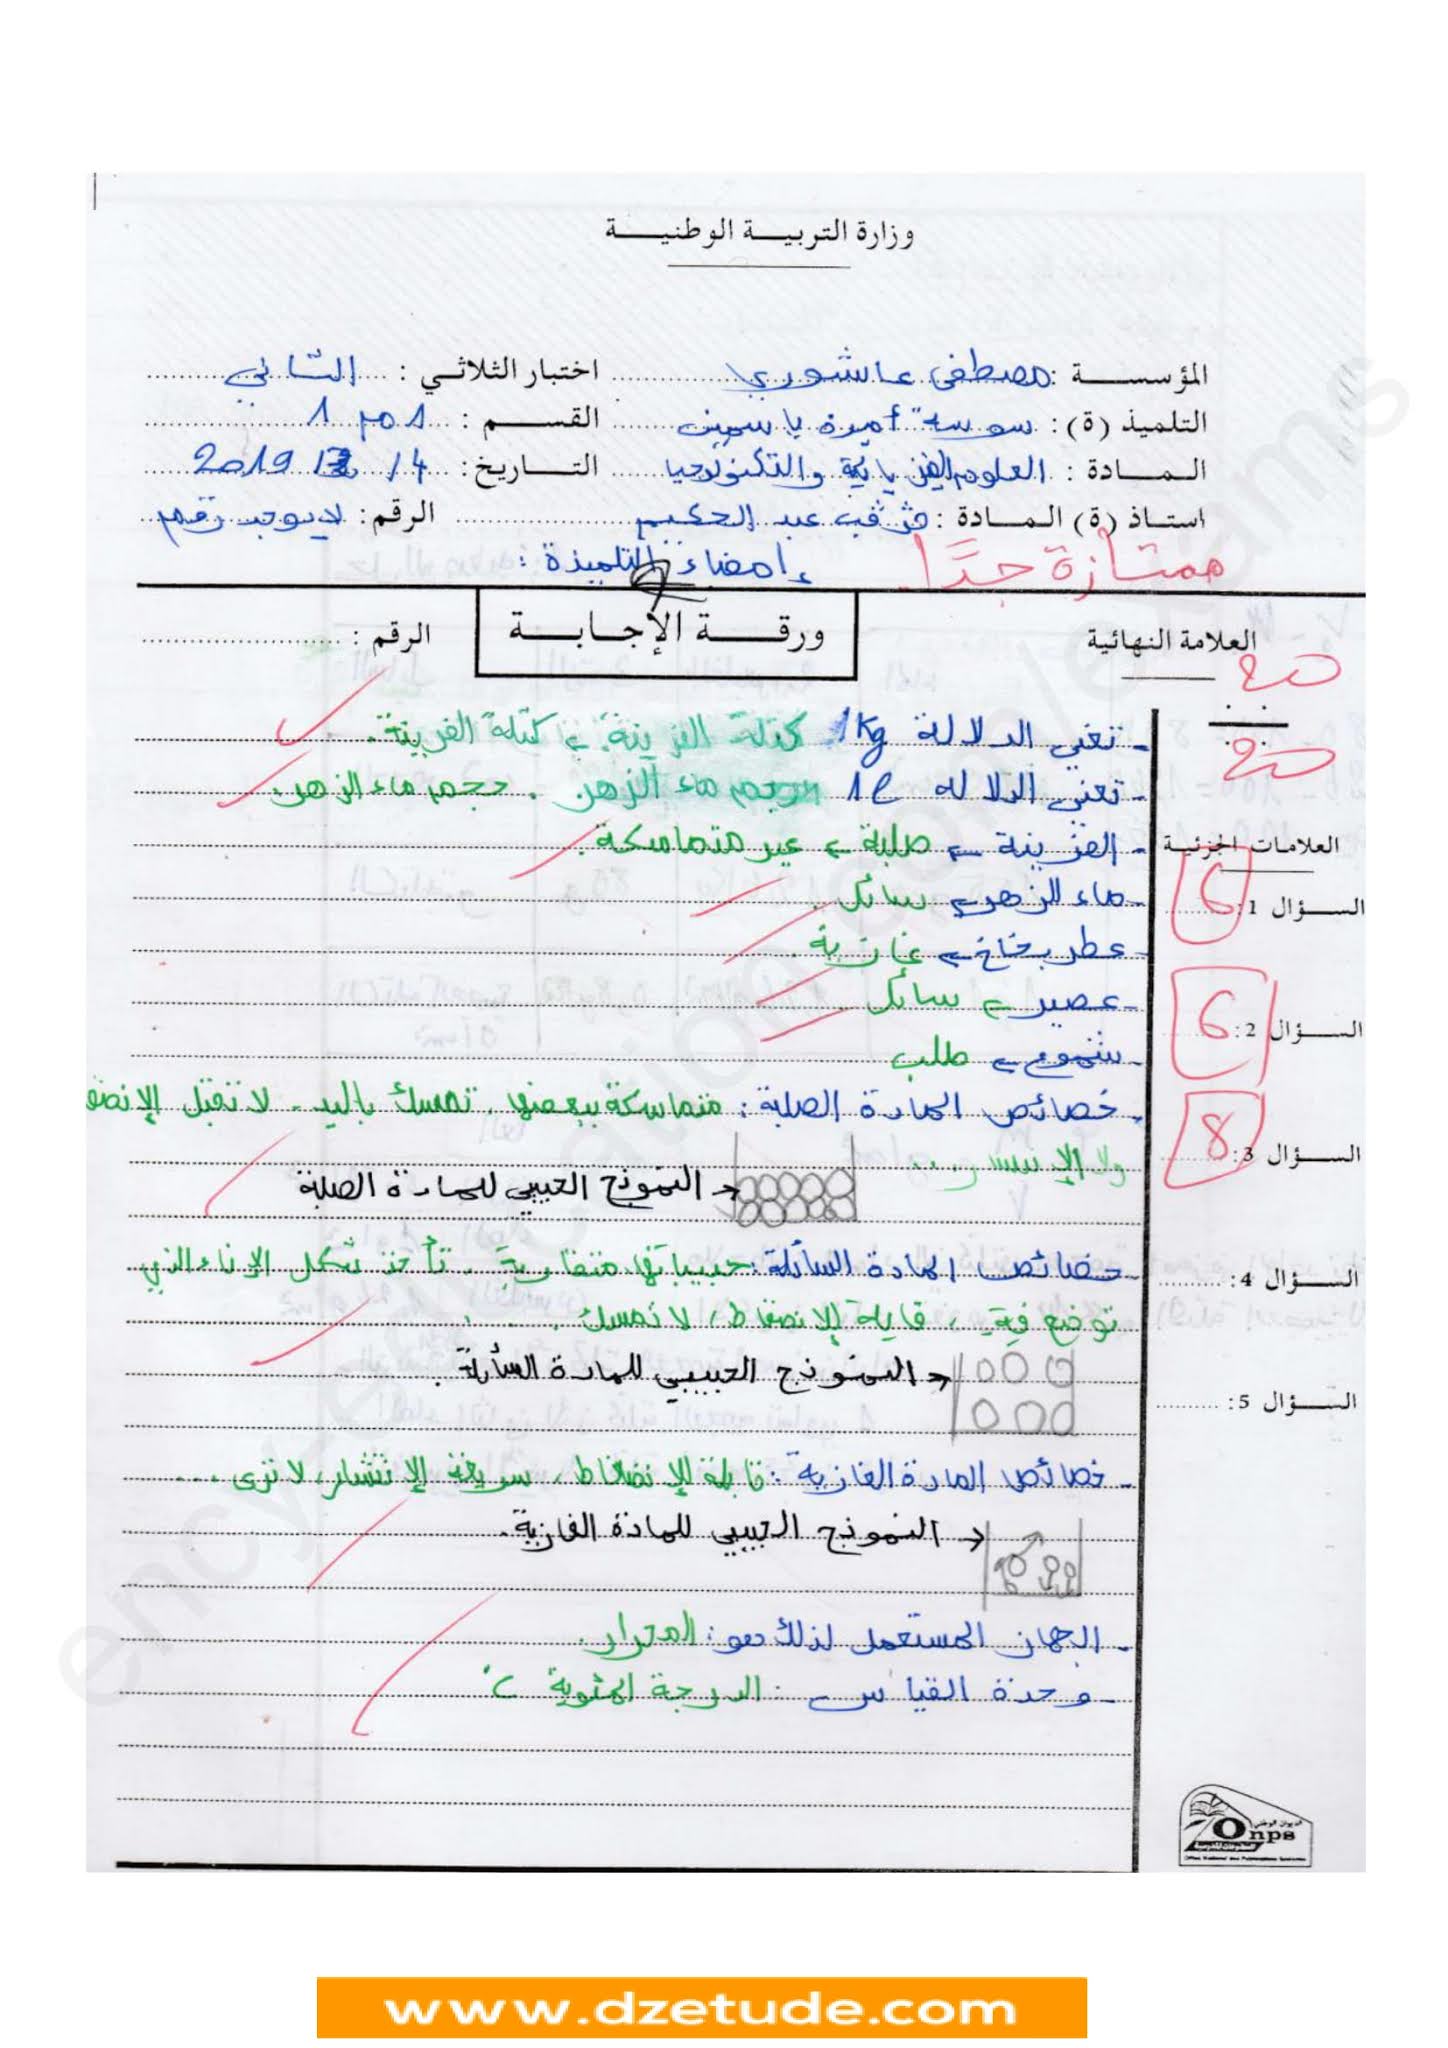 وزارة التربية الوطنية
المؤسسة : مصطفى عاشوري اختبار الثلاثي : الثاني
التلميذ (ة) : سوسة أميرة ياسمين القسم : 1 م 1
المادة : العلوم الفيزيائية والتكنولوجيا التاريخ : 4 / 3 / 2019
استاذ (ة) المادة : عبد الحكيم الرقم : لا يوجد رقم
ممتازة جدًا إمضاء التلميذة :
العلامة النهائية ورقة الإجابة الرقم :
20
20
- تعني الدلالة 1Kg كتلة الفرينة. كتلة الفرينة.
- تعني الدلالة 1l حجم ماء الزهر. حجم ماء الزهر.
- الفرينة ← صلبة ← غير متماسكة.
- ماء الزهر ← سائل.
- عطر بخاخ ← غازية.
- عصير ← سائل.
- شموع ← صلب
- خصائص المادة الصلبة : متماسكة ببعضها، تمسك باليد، لا تقبل الإنضغ
ولا الإنتشار...
→ النموذج الحبيبي للمادة الصلبة
- خصائص المادة السائلة : حبيباتها متقاربة، تأخذ شكل الإناء الذي
توضع فيه، قابلة للإنضغاط، لا تمسك....
→ النموذج الحبيبي للمادة السائلة.
- خصائص المادة الغازية : قابلة للإنضغاط، سريعة الإنتشار، لا ترى...
→ النموذج الحبيبي للمادة الغازية.
- الجهاز المستعمل لذلك هو : المحرار.
- وحدة القياس : الدرجة المئوية °C
العلامات الجزئية
السؤال 1 : 6
السؤال 2 : 6
السؤال 3 : 8
السؤال 4 :
السؤال 5 :
Onps
ency-education.com/exams
www.dzetude.com